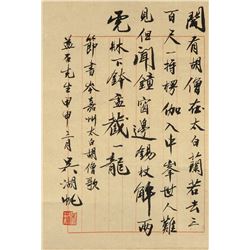 闻有胡僧在太白蘭若去三
百尺一持楞伽入中峯世人難
見但聞鐘窗邊錫杖解兩
虎牀下鉢盂藏一龍
節書岑嘉州太白胡僧歌
益石先生甲申二月吴湖帆